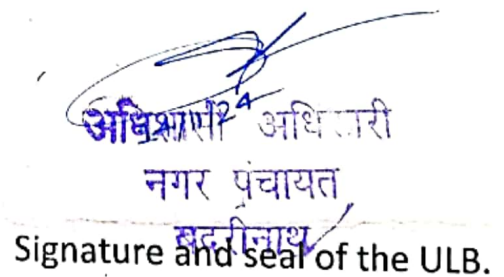 अधिशासी अधिकारी
नगर पंचायत
बदरीनाथ
Signature and seal of the ULB.